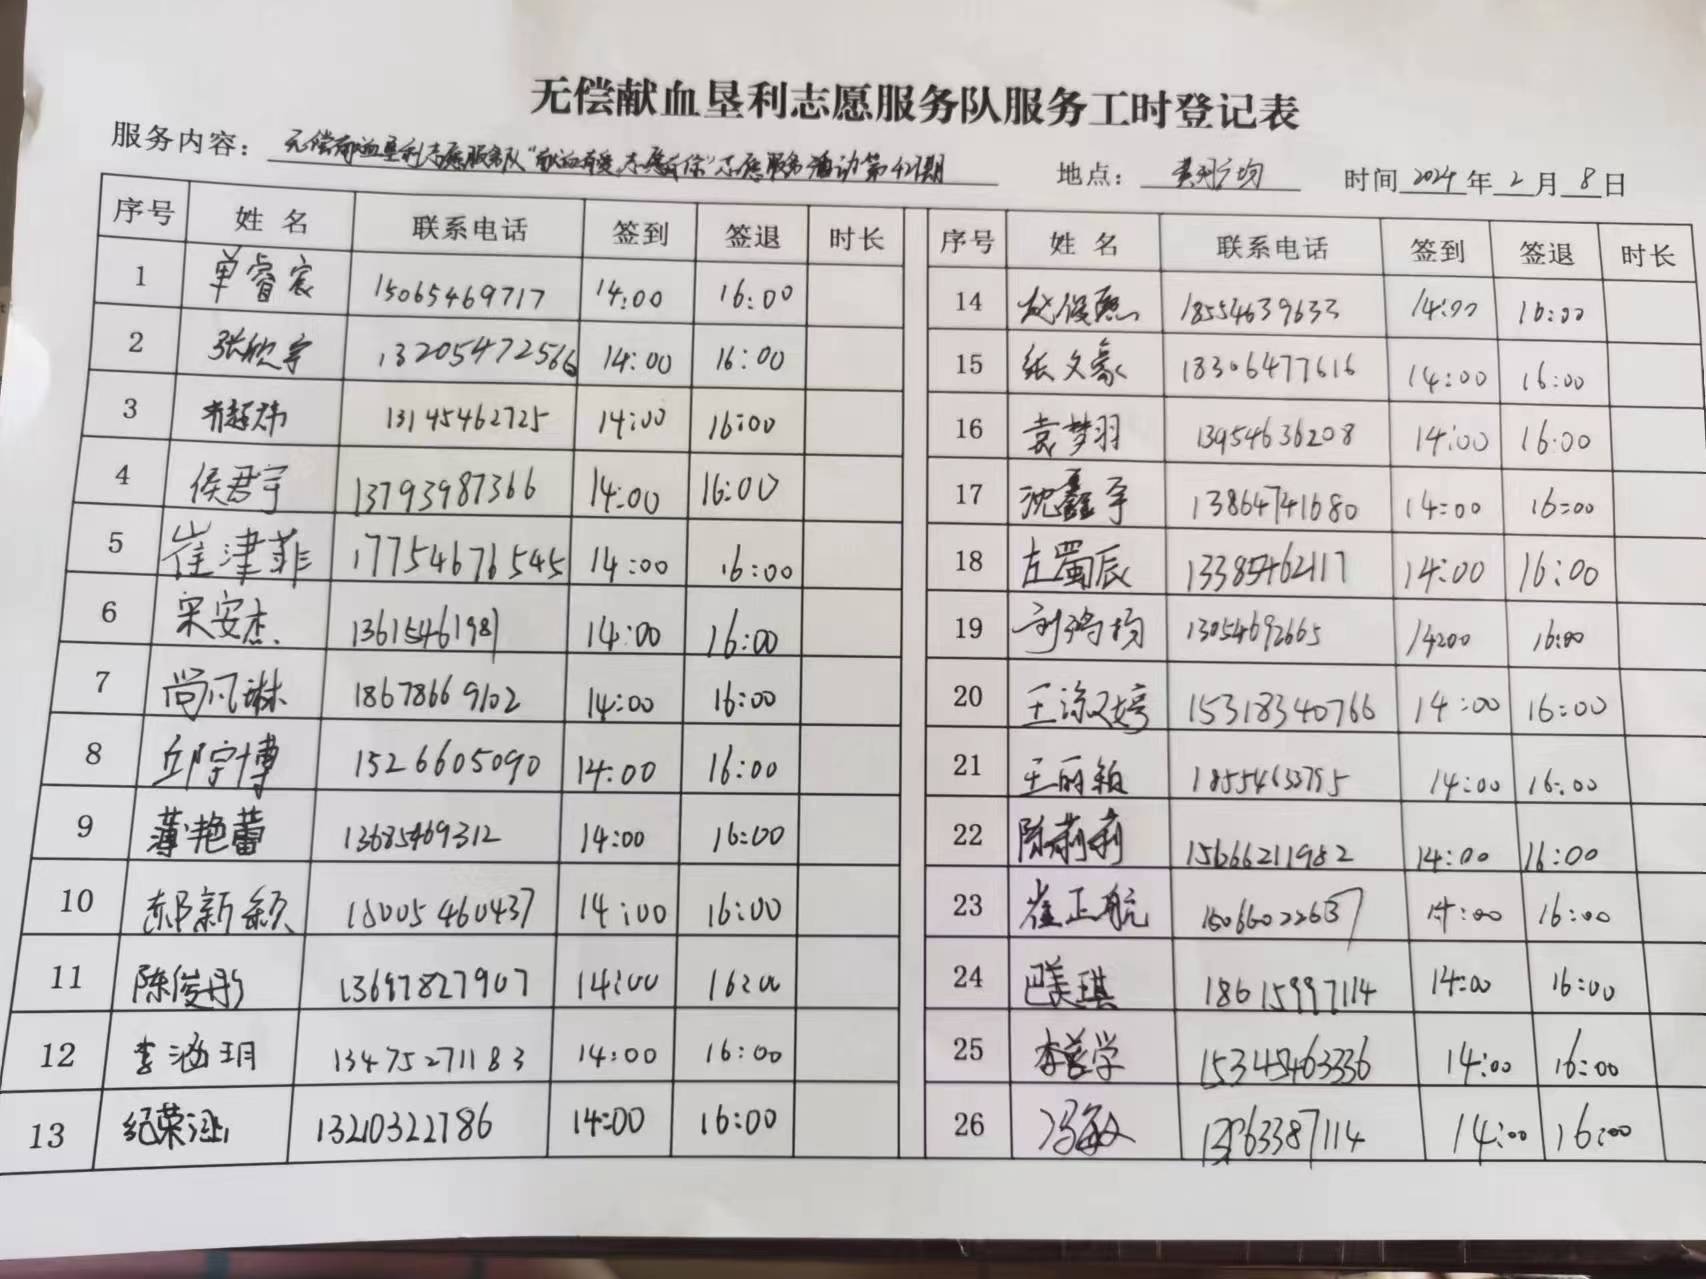 无偿献血垦利志愿服务队服务工时登记表
服务内容： 无偿献血垦利志愿服务队“献血有爱,志愿"志愿服务活动第421期 地点： 时间 2024 年 2 月 8 日
序号 姓名 联系电话 签到 签退 时长 序号 姓名 联系电话 签到 签退 时长
1 单睿宸 15065469717 14:00 16:00 14 俊熙 18554639633 14:00 16:00
2 张欣宇 13205472566 14:00 16:00 15 张文豪 18306477616 14:00 16:00
3 13145462725 14:00 16:00 16 袁梦羽 13954636208 14:00 16:00
4 侯君宇 13793987366 14:00 16:00 17 沈鑫宇 13864741680 14:00 16:00
5 崔津菲 17754676545 14:00 16:00 18 左蜀辰 13385462117 14:00 16:00
6 宋安杰 13615461981 14:00 16:00 19 刘鸿均 13054692665 14:00 16:00
7 尚凡琳 18678669102 14:00 16:00 20 王婷 15318340766 14:00 16:00
8 邱宇博 15266605090 14:00 16:00 21 王丽颖 14:00 16:00
9 薄艳蕾 13685469312 14:00 16:00 22 陈莉莉 15666211982 14:00 16:00
10 新颖 18005460437 14:00 16:00 23 崔正航 15066022637 14:00 16:00
11 陈俊彤 13697827907 14:00 16:00 24 巴美琪 18615997114 14:00 16:00
12 李涵玥 13475271183 14:00 16:00 25 李学 15345463336 14:00 16:00
13 纪荣 13210322786 14:00 16:00 26 冯敏 14:00 16:00